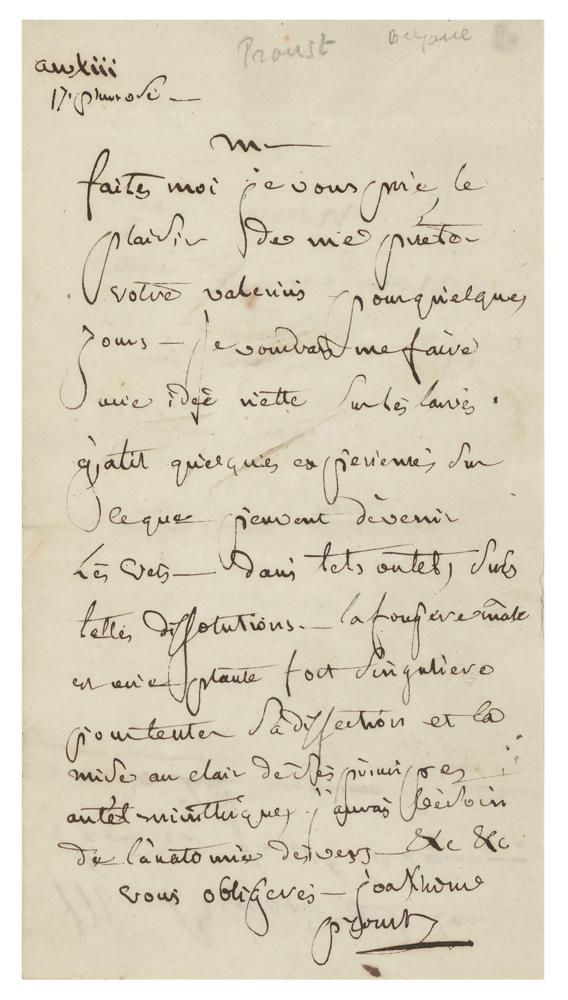 Proust
an xiii
17 pluviose —
M —
faites moi je vous prie, le
plaisir de me prêter
votre valerius pourquelques
jours — je voudrais me faire
une idée nette sur les larves .
quelques experiences sur
leque peuvent devenir
Les Vers — dans tels ou tels, sucs
telles dissolutions. — la fougere male
est une plante fort singuliere
pour tenter sa dissection et la
mise au clair de ses principes
antel-minthiques, j'aurais besoin
de l'anatomie des vers — &c &c
vous obligeres —
proust